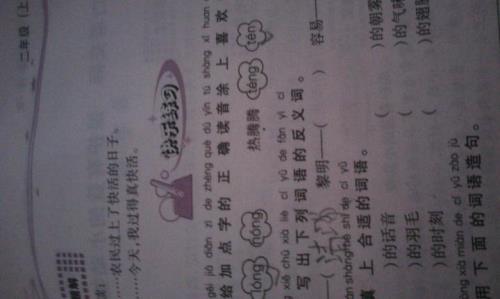 二年级（上
理解
……农民过上了快活的日子。
……今天，我过得真快活。
快乐练习
gěi jiā diǎn zì de zhèng què dú yīn tú shàng xǐ huan
给加点字的正确读音涂上喜欢
lóng nóng 热腾腾 téng tén
xiě chū xià liè cí yǔ de fǎn yì cí
写出下列词语的反义词。
——( ) 黎明——( ) 容易—
shàng hé shì de cí yǔ
填上合适的词语。
)的话音 ( )的朝
)的羽毛 ( )的气味
)的时刻 ( )的翅膀
xià miàn de cí yǔ zào jù
用下面的词语造句。